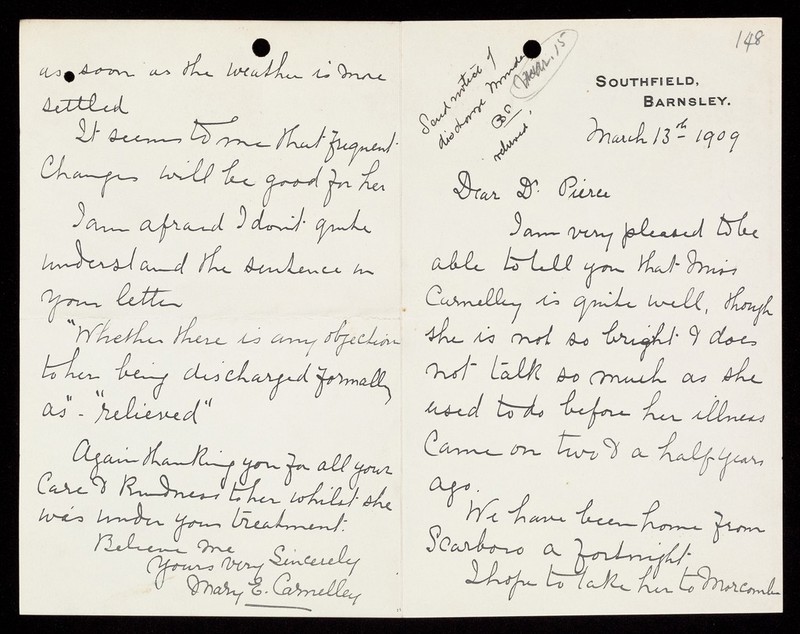 148
Send notice of
discharge Monday
Mar. 15
as
relieved.
SOUTHFIELD,
BARNSLEY.
March 13th 1909
Dear Dr. Pierce
I am very pleased to be
able to tell you that Miss
Carnelley is quite well, though
she is not so bright & does
not talk so much as she
used to do before her illness
came on two & a half years
ago.
We have been home from
Scarboro a fortnight
I hope to take her to Morecambe
as soon as the weather is more
settled
It seems to me that frequent
Changes will be good for her
I am afraid I don't quite
understand the sentence in
your letter
"Whether there is any objection
to her being discharged formally
as" - "relieved"
Again thanking you for all your
Care & Kindness to her whilst she
was under your treatment.
Believe me
Yours very Sincerely
Mary E. Carnelley